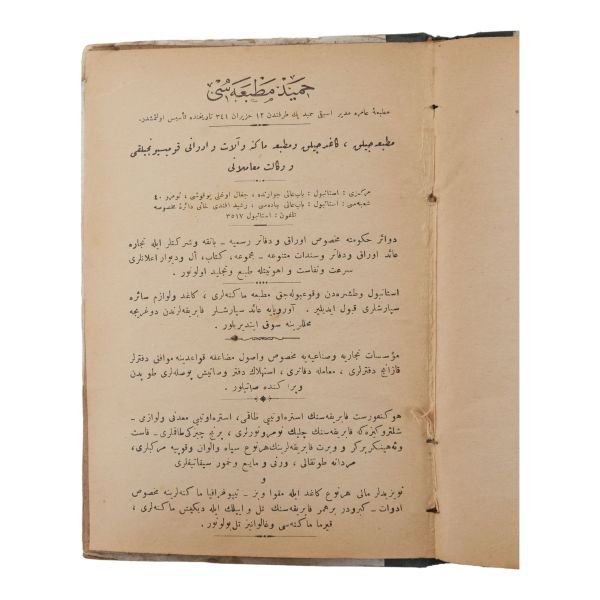 حمید مطبعه‌سی
مطبعهٔ عامره مدیر اسبقی حمید بك طرفندن ١٢ حزیران ٣٤١ تاریخنده تأسیس اولنمشدر.
مطبعه‌جیلق ، كاغدجیلق و مطبعه ماكنه و آلات و ادواتی قومیسیونجیلغی
و وكالت معاملاتی
مركزی : استانبول : باب‌عالی جوارنده ، جغال اوغلی یوقوشی ، نومرو ٤٠
شعبه‌سی : استانبول : باب‌عالی جاده‌سی ، رشید افندی خانی دائرهٔ مخصوصه
تلفون : استانبول ٣٥١٧
دوائر حكومته مخصوص اوراق و دفاتر رسمیه ـ بانقه و شركتلر ایله تجاره
عائد اوراق و دفاتر و سندات متنوعه ـ مجموعه، كتاب، ال و دیوار اعلانلری
سرعت و نفاست و اهونیتله طبع و تجلید اولونور.
استانبول و طشره‌دن وقوعبوله‌جق مطبعه ماكنه‌لری ، كاغد و لوازم سائره
سپارشلری قبول ایدیلیر . آوروپایه عائد سپارشلر فابریقه‌لرندن دوغریجه
محللرینه سوق ایتدیریلور.
مؤسسات تجاریه و صناعیه‌یه مخصوص و اصول مضاعفه قواعدینه موافق دفترلر
قازانج دفترلری ، معامله دفاتری ، استهلاك دفتر و صاتیش پوصله‌لری طوپدن
و پراكنده صاتیلور.
هوكنفورست فابریقه‌سنك استره‌اوتیپی طاقمی، استره‌اوتیپی معدنی و لوازمی ـ
فابریقه‌سنك چلیك نومروتورلری ، پرنج چیزكی طاقملری ـ فاست
و برت فابریقه‌لرینك هر نوع سیاه و الوان و قوپیه مركبلری،
مردانه طوتقالی ، ورنی و مایع و خمور سیقاتیفلری
و
هر نوع كاغد ایله مقوا و بز ـ تیپوغرافیا ماكنه‌لرینه مخصوص
ادوات ـ برهمر فابریقه‌سنك تل و ایپلك ایله دیكیش ماكنه‌لری ،
قیرما ماكنه‌سی و غالوانیز تل بولونور.